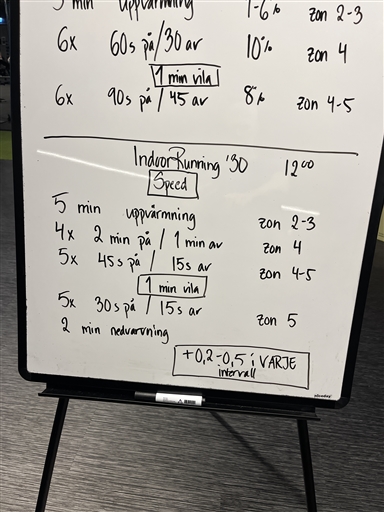 5 min uppvärmning 1-6% zon 2-3
6x 60s på/30 av 10% zon 4
1 min vila
6x 90s på / 45 av 8% zon 4-5
IndoorRunning '30 12⁰⁰
Speed
5 min uppvärmning zon 2-3
4x 2 min på / 1 min av zon 4
5x 45s på / 15s av zon 4-5
1 min vila
5x 30s på / 15s av zon 5
2 min nedvarvning
+0,2-0,5 i VARJE
intervall